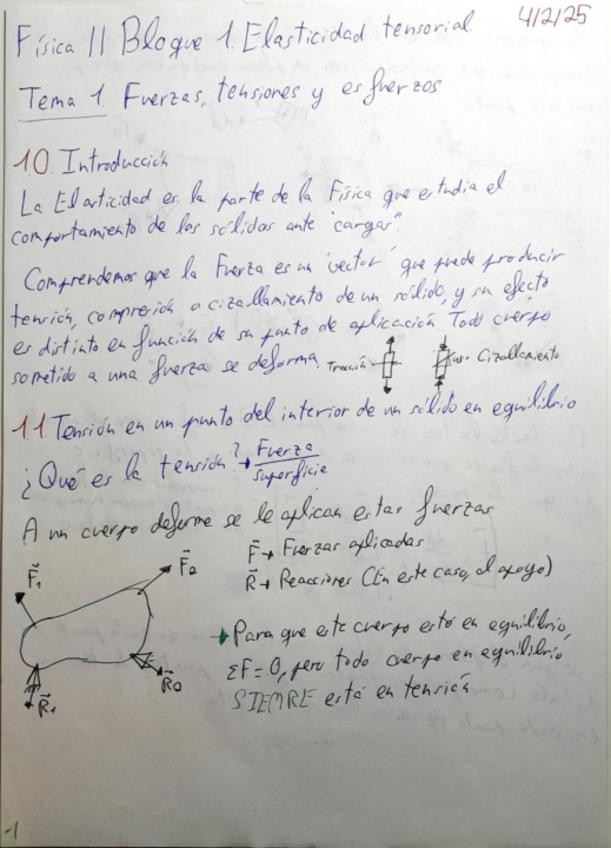 4/2/25
Física II Bloque 1. Elasticidad tensorial
Tema 1. Fuerzas, tensiones y esfuerzos
1.0. Introducción
La Elasticidad es la parte de la Física que estudia el
comportamiento de los sólidos ante "cargas".
Comprendemos que la Fuerza es un "vector" que puede producir
tensión, compresión o cizallamiento de un sólido, y su efecto
es distinto en función de su punto de aplicación. Todo cuerpo
sometido a una fuerza se deforma.
Tracción
Cizallamiento
1.1 Tensión en un punto del interior de un sólido en equilibrio
¿Qué es la tensión? → Fuerza
superficie
A un cuerpo deforme se le aplican estas fuerzas
F⃗ → Fuerzas aplicadas
R⃗ → Reacciones (En este caso, el apoyo)
F⃗₁
F⃗₂
R⃗₁
R⃗₂
→ Para que este cuerpo esté en equilibrio,
ΣF = 0, pero todo cuerpo en equilibrio
SIEMPRE está en tensión
1